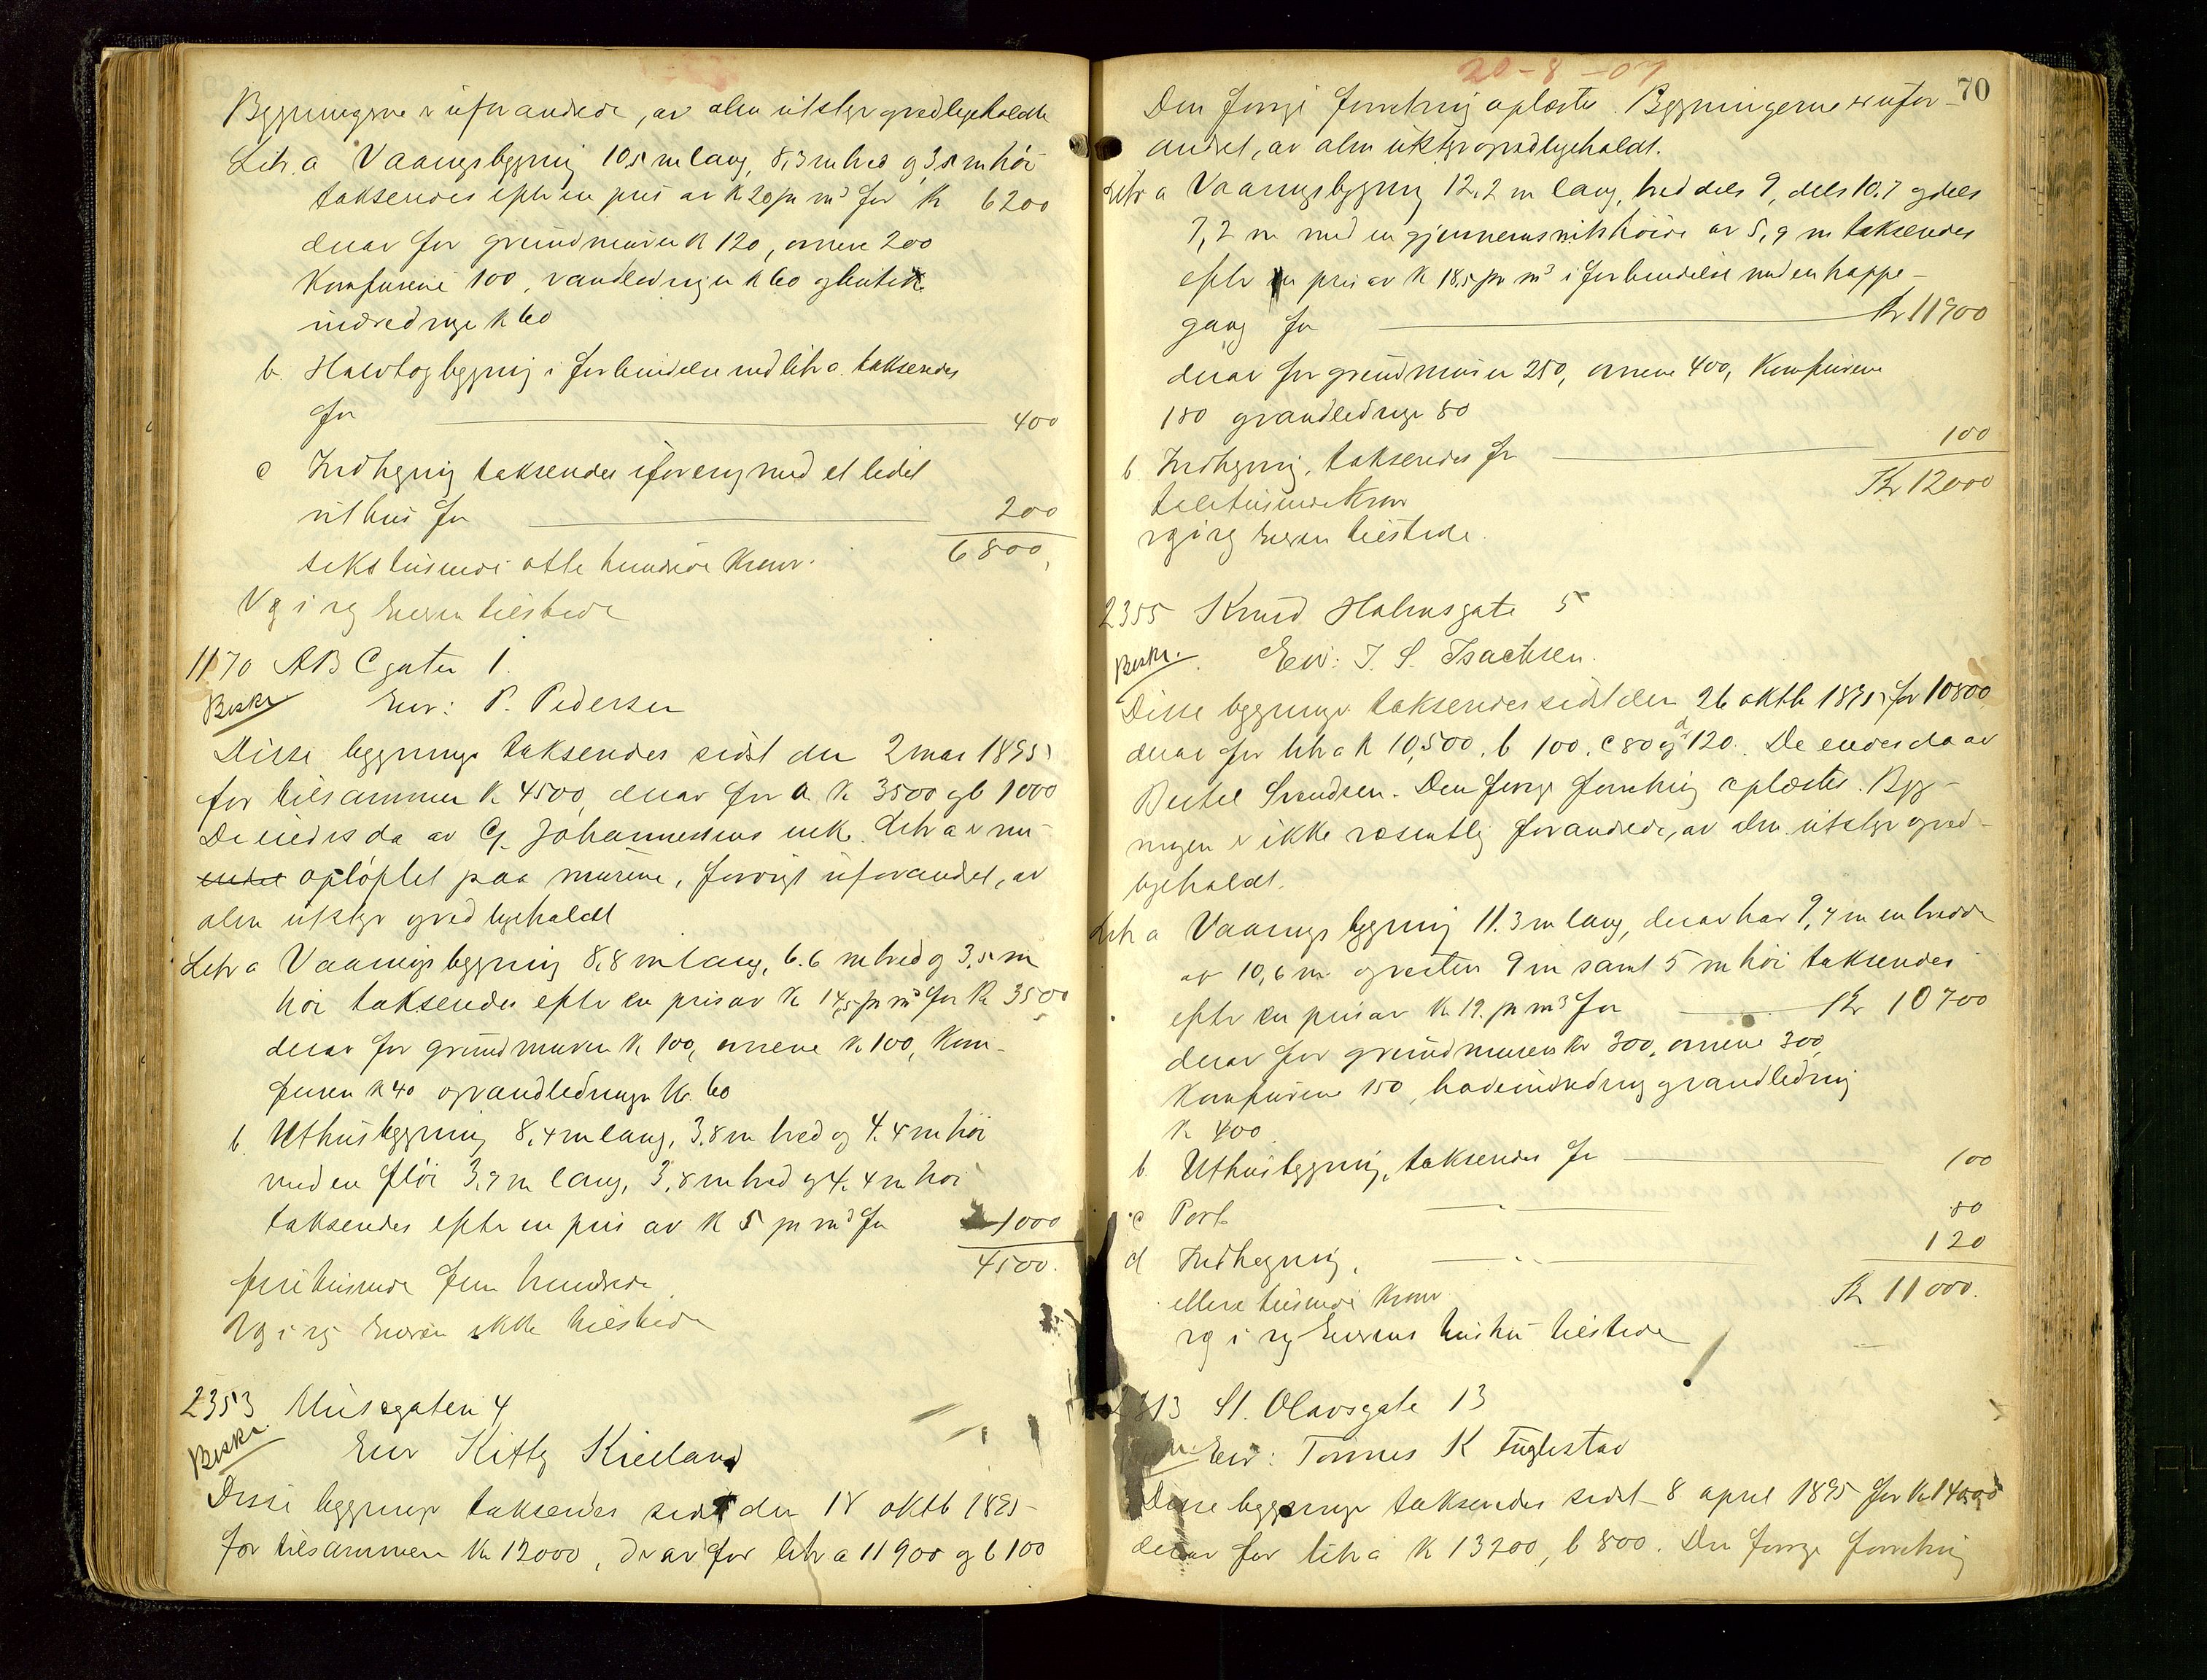 Bygningerne er uforandrede, av alm utstyr og vedligeholdte
Litr. a Vaaningsbygning 10,5 m lang, 8,3 m bred og 3,5 m høi
takseredes efter en pris av K 20 pr m³ for K 6200
derav for grundmuren K 120, ovnene 200
Komfurene 100, vandledningen K 60 og butik
indredninge K 60
b. Halvtagbygning i forbindelse med litr a. takseredes
for 400
c Indhegning takseredes iforening med et lidet
uthus for 200
6800,
sekstusinde otte hundrede Kroner.
Vg i rg Eieren tilstede
1170 ABC gaten 1.
Beskr Eier: P. Pedersen
Disse bygninge takseredes sidst den 2 mai 1895
for tilsammen K 4500, derav for a K 3500 og b 1000
De eiedes da av G. Johannesens enke. Litr a er nu
opløftet paa murene, forøvrigt uforandret, av
alm utstyr og vedligeholdt
Litr a Vaaningsbygning 8,8 m lang, 6.6 m bred og 3,5 m
høi takseredes efter en pris av K 14,5 pr m³ for K 3500
derav for grundmuren K 100, ovnene K 100, Kom-
furen K 40 og vandledninge K. 60
b. Uthusbygning 8,4 m lang, 3,8 m bred og 4,4 m høi
med en fløi 3,9 m lang, 3,8 m bred og 4,4 m høi
takseredes efter en pris av K 5 pr m³ for 1000
4500.
firetusinde fem hundrede
Vg i rg Eieren ikke tilstede
2353 Musegaten 4
Beskr. Eier Kitty Kielland
Disse bygninge takseredes sidst den 18 oktb 1895
for tilsammen K 12000, derav for litr a 11900 og b 100
20-8-07
70
Den forrige forretning oplæstes. Bygningerne er ufor-
andret, av alm utstyr og vedligeholdt.
Litr a Vaaningsbygning 12,2 m lang, bred dels 9, dels 10,7 og dels
7,2 m med en gjennemsnitshøide av 5,9 m takseredes
efter en pris av K 18,5 pr m³ i forbindelse med en trappe-
gang for Kr 11900
derav for grundmuren 250, ovnene 400, Komfurene
180 og vandledninge 80
b. Indhegning, takseredes for 100
Kr 12000
tolvtusinde Kroner
vg i rg Eieren tilstede.
2355 Knud Holmsgate 5
Beskr. Eier: I. S. Isachsen.
Disse bygninge takseredes sidst den 26 oktb 1895 for 10800
derav for litr a K 10,500, b 100, c 80 og d 120. De eiedes da av
Bertel Svendsen. Den forrige forretning oplæstes. Byg-
ningen er ikke væsentlig forandrede, av alm. utstyr og ved-
ligeholdt.
Litr a Vaaningsbygning 11.3 m lang, derav har 9,4 m en bredde
av 10,6 m og resten 9 m samt 5 m høi takseredes
efter en pris av K 19. pr m³ for Kr 10700
derav for grundmuren Kr 300, ovnene 300,
Komfurene 150, badeindredning og vandledning
K 400
b. Uthusbygning, takseredes for 100
c Port 80
d Indhegning, 120
Kr 11000.
elleve tusinde Kroner
vg i rg Eierens hustru tilstede
St. Olavsgate 13
Eier: Tønnes K Fuglestad
Disse bygninge takseredes sidst 8 april 1895 for K 14000
derav for litr a K 13200, b 800. Den forrige forretning